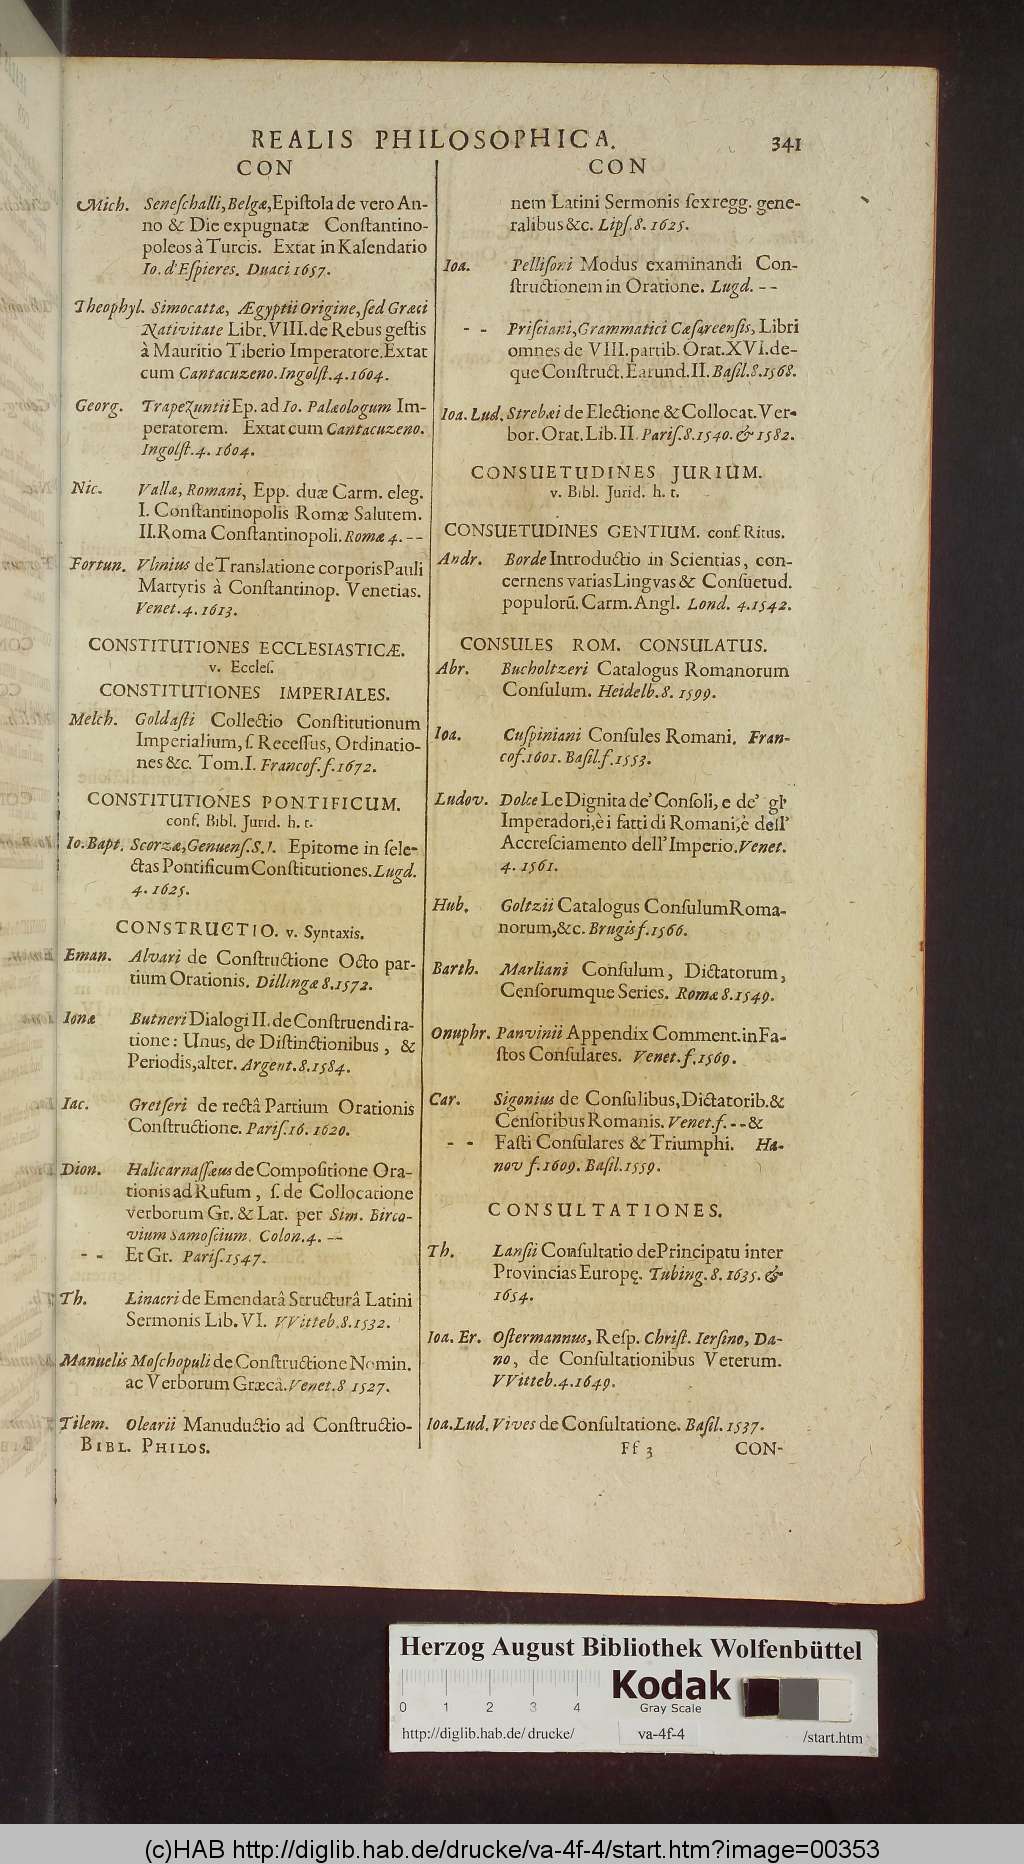 REALIS PHILOSOPHICA. 341
CON
Mich. Seneſchalli, Belgæ, Epiſtola de vero An-
no & Die expugnatæ Conſtantino-
poleos à Turcis. Extat in Kalendario
Io. d'Eſpieres. Duaci 1657.
Theophyl. Simocattæ, Ægyptii Origine, ſed Græci
Nativitate Libr. VIII. de Rebus geſtis
à Mauritio Tiberio Imperatore. Extat
cum Cantacuzeno. Ingolſt. 4. 1604.
Georg. Trapezuntii Ep. ad Io. Palæologum Im-
peratorem. Extat cum Cantacuzeno.
Ingolſt. 4. 1604.
Nic. Vallæ, Romani, Epp. duæ Carm. eleg.
I. Conſtantinopolis Romæ Salutem.
II. Roma Conſtantinopoli. Romæ 4. --
Fortun. Vlmius de Translatione corporis Pauli
Martyris à Conſtantinop. Venetias.
Venet. 4. 1613.
CONSTITUTIONES ECCLESIASTICÆ.
v. Eccleſ.
CONSTITUTIONES IMPERIALES.
Melch. Goldaſti Collectio Conſtitutionum
Imperialium, ſ. Receſſus, Ordinatio-
nes &c. Tom. I. Francof. f. 1672.
CONSTITUTIONES PONTIFICUM.
conf. Bibl. Jurid. h. t.
Io. Bapt. Scorzæ, Genuenſ. S. I. Epitome in ſele-
ctas Pontificum Conſtitutiones. Lugd.
4. 1625.
CONSTRUCTIO. v. Syntaxis.
Eman. Alvari de Conſtructione Octo par-
tium Orationis. Dillingæ 8. 1572.
Ionæ Butneri Dialogi II. de Conſtruendi ra-
tione: Unus, de Diſtinctionibus, &
Periodis, alter. Argent. 8. 1584.
Iac. Gretſeri de rectâ Partium Orationis
Conſtructione. Pariſ. 16. 1620.
Dion. Halicarnaſſæus de Compoſitione Ora-
tionis ad Rufum, ſ. de Collocatione
verborum Gr. & Lat. per Sim. Birco-
vium Samoſcium. Colon. 4. --
-- Et Gr. Pariſ. 1547.
Th. Linacri de Emendatâ Structurâ Latini
Sermonis Lib. VI. VVitteb. 8. 1532.
Manuelis Moſchopuli de Conſtructione Nomin.
ac Verborum Græcâ. Venet. 8 1527.
Tilem. Olearii Manuductio ad Conſtructio-
BIBL. PHILOS.
CON
nem Latini Sermonis ſex regg. gene-
ralibus &c. Lipſ. 8. 1625.
Ioa. Belliſoni Modus examinandi Con-
ſtructionem in Oratione. Lugd. --
-- Priſciani, Grammatici Cæſareenſis, Libri
omnes de VIII. partib. Orat. XVI. de-
que Conſtruct. Earund. II. Baſil. 8. 1568.
Ioa. Lud. Strebæi de Electione & Collocat. Ver-
bor. Orat. Lib. II. Pariſ. 8. 1540. & 1582.
CONSUETUDINES JURIUM.
v. Bibl. Jurid. h. t.
CONSUETUDINES GENTIUM. conf. Ritus.
Andr. Borde Introductio in Scientias, con-
cernens varias Lingvas & Conſuetud.
populorũ. Carm. Angl. Lond. 4. 1542.
CONSULES ROM. CONSULATUS.
Abr. Bucholtzeri Catalogus Romanorum
Conſulum. Heidelb. 8. 1599.
Ioa. Cuſpiniani Conſules Romani. Fran-
cof. 1601. Baſil. f. 1553.
Ludov. Dolce Le Dignita de' Conſoli, e de' gl'
Imperadori, è i fatti di Romani, è dell'
Accreſciamento dell' Imperio. Venet.
4. 1561.
Hub. Goltzii Catalogus Conſulum Roma-
norum, &c. Brugis f. 1566.
Barth. Marliani Conſulum, Dictatorum,
Cenſorumque Series. Romæ 8. 1549.
Onuphr. Panvinii Appendix Comment. in Fa-
ſtos Conſulares. Venet. f. 1569.
Car. Sigonius de Conſulibus, Dictatorib. &
Cenſoribus Romanis. Venet. f. -- &
-- Faſti Conſulares & Triumphi. Ha-
nov f. 1609. Baſil. 1559.
CONSULTATIONES.
Th. Lanſii Conſultatio de Principatu inter
Provincias Europę. Tubing. 8. 1635. &
1654.
Ioa. Er. Oſtermannus, Reſp. Chriſt. Ierſino, Da-
no, de Conſultationibus Veterum.
VVitteb. 4. 1649.
Ioa. Lud. Vives de Conſultatione. Baſil. 1537.
Ff 3 CON-
Herzog August Bibliothek Wolfenbüttel
0 1 2 3 4
Kodak
Gray Scale
http://diglib.hab.de/drucke/ va-4f-4 /start.htm
(c)HAB http://diglib.hab.de/drucke/va-4f-4/start.htm?image=00353